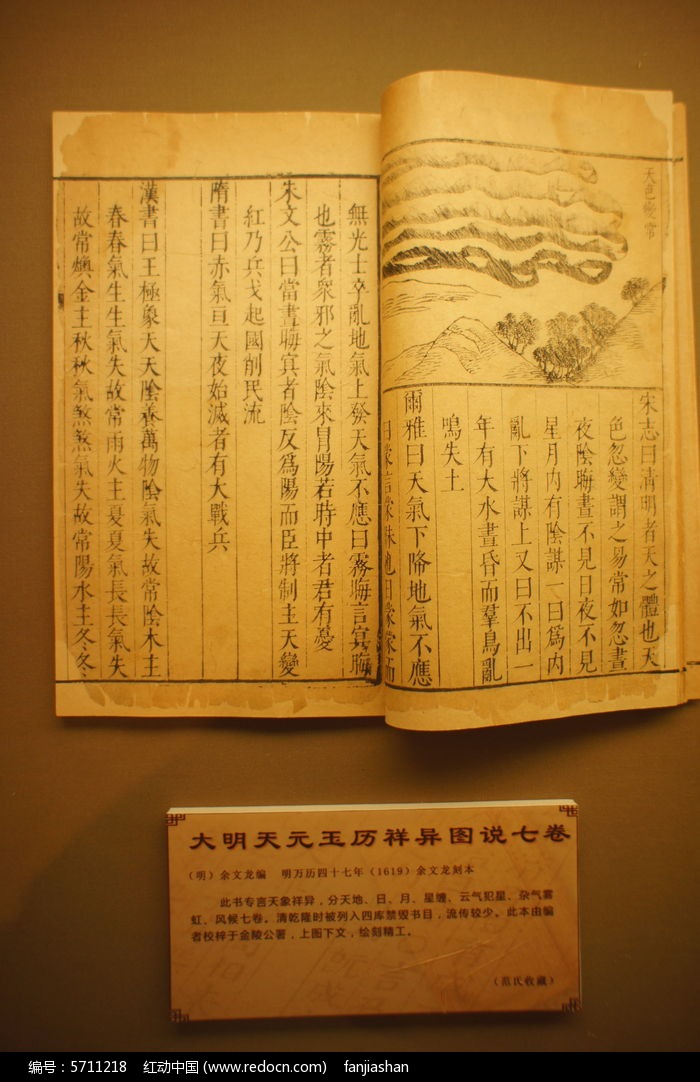 天色變常
宋志曰清明者天之體也天
色忽變謂之易常如忽晝
夜陰晦晝不見日夜不見
星月內有陰謀一曰爲內
亂下將謀上又曰不出一
年有大水晝昏而羣鳥亂
鳴失土
爾雅曰天氣下降地氣不應
無光士卒亂地氣上發天氣不應曰霧晦言冥晦
也霧者衆邪之氣陰來冒陽若時中者君有憂
朱文公曰當晝晦冥者陰反爲陽而臣將制主天變
紅乃兵戈起國削民流
隋書曰赤氣亘天夜始滅者有大戰兵
漢書曰王極象天天陰養萬物陰氣失故常陰木主
春春氣生生氣失故常雨火主夏夏氣長長氣失
故常燠金主秋秋氣煞煞氣失故常陽水主冬冬
大明天元玉历祥异图说七卷
（明）余文龙编 明万历四十七年（1619）余文龙刻本
此书专言天象祥异，分天地、日、月、星缠、云气犯星、杂气雾
虹、风候七卷。清乾隆时被列入四库禁毁书目，流传较少。此本由编
者校梓于金陵公署，上图下文，绘刻精工。
（范氏收藏）
编号：5711218 红动中国 (www.redocn.com) fanjiashan